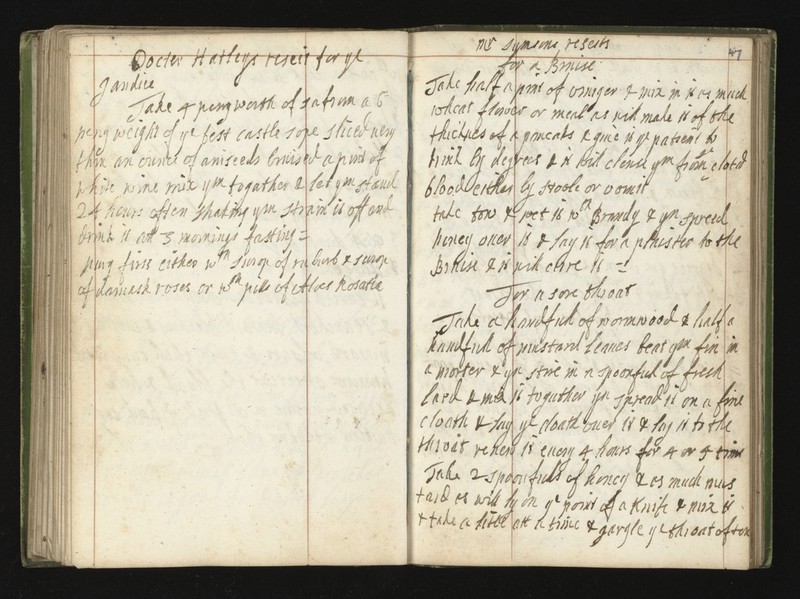 Docter Hatleys reseit for ye
Jandice
Take 4 penyworth of safrum a 6
peny weight of ye best castle sope sliced very
thin an ounce of aniseeds bruised a pint of
white wine mix ym togather & let ym stand
24 hours often shaking ym strain it off and
drink it att 3 mornings fasting =
purg first either wth surop of rubarb & surop
of damask roses or wth pils of Aloes Rosatia
Mrs Symsons reseits
47
for a Bruise
Take half a pint of viniger & mix in it as much
wheat flower or meal as will make it of the
thicknes of a pancake & give it ye patient to
drink by degrees & it will clense ym from cloted
blood either by stoole or vomit
take tow & wet it wth Brandy & yn spread
honey over it & lay it for a plaister to the
Bruise & it will cure it =
For a sore throat
Take a handfull of wormwood & half a
handfull of mustard leaves beat ym fine in
a morter & yn strre in a spoonfull of fresh
lard & mix it togather yn spread it on a fine
cloath & lay ye cloath over it & lay it to the
throat renew it every 4 hours for 4 or 5 times
Take 2 spoonfulls of honey & as much mus
tard as will ly on ye point of a knife & mix it
& take a little att a time & gargle ye throat often